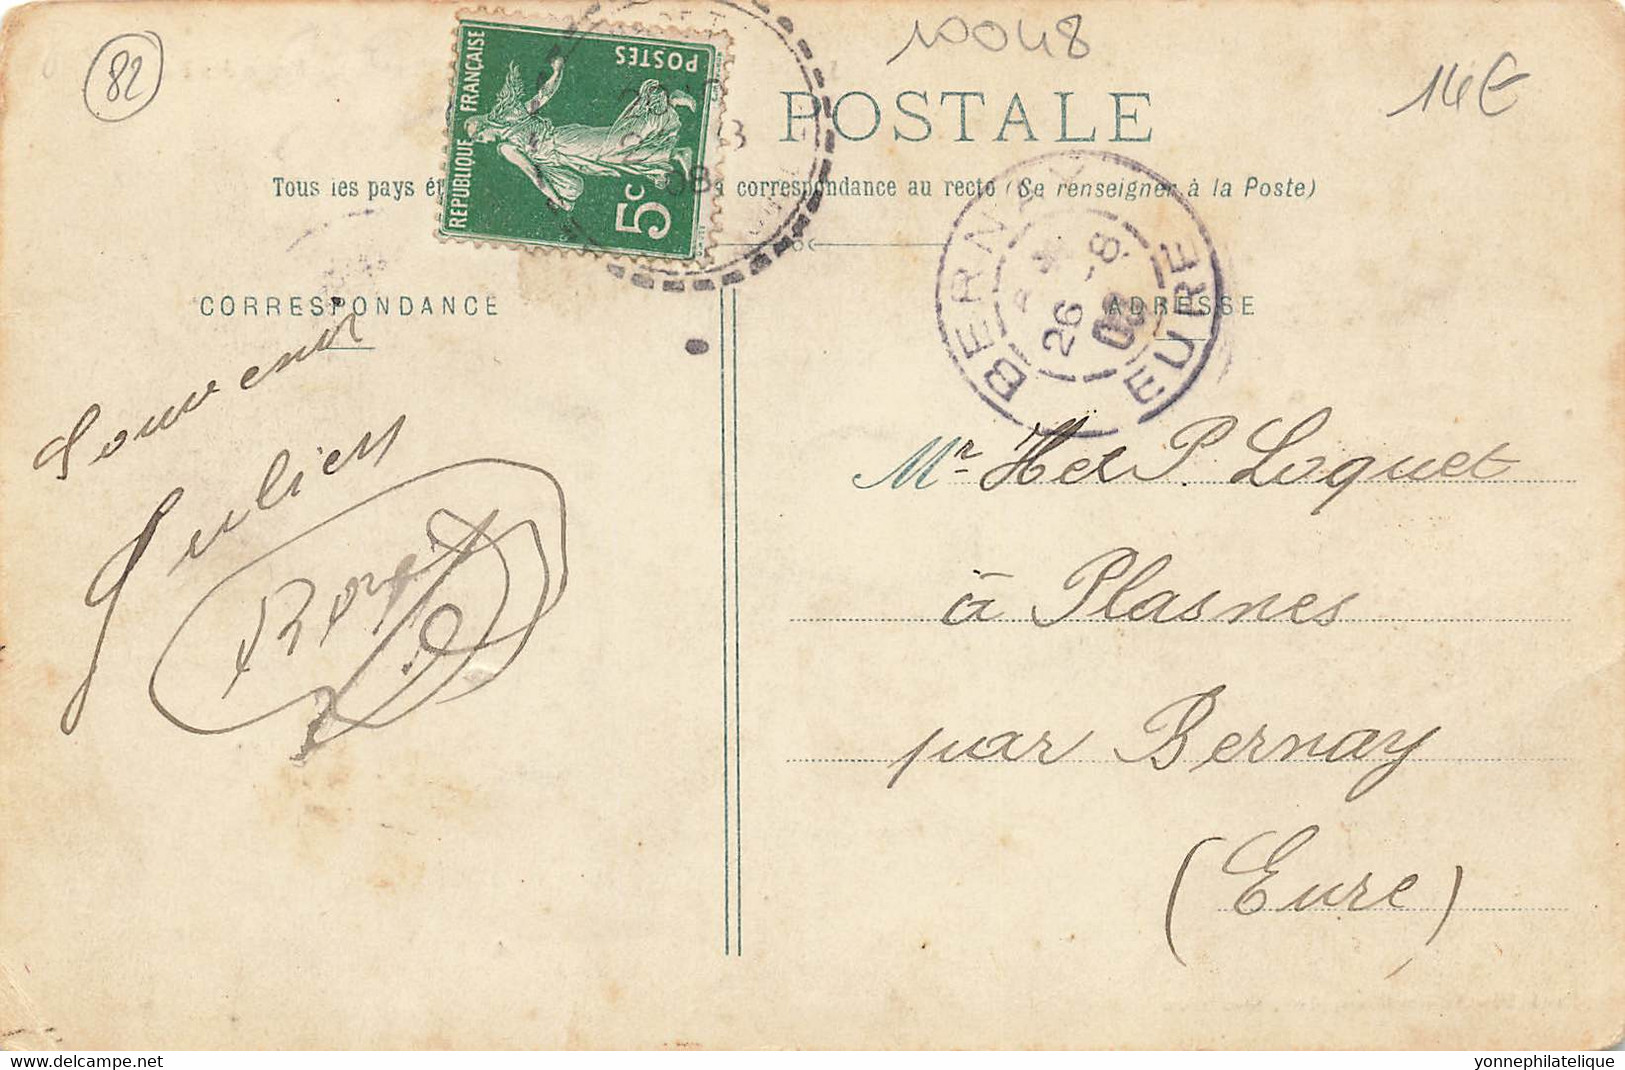 82
10048
14€
REPUBLIQUE FRANÇAISE
POSTES
5c
08
POSTALE
Tous les pays correspondance au recto (Se renseigner à la Poste)
BERNAY
26 -8
08
EURE
CORRESPONDANCE
ADRESSE
Souvenir
Julien
Mr P. Loquet
à Plasnes
par Bernay
(Eure)
Delcampe.net
yonnephilatelique